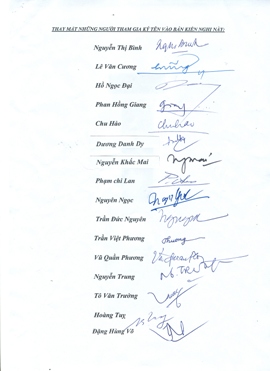 THAY MẶT NHỮNG NGƯỜI THAM GIA KÝ TÊN VÀO BẢN KIẾN NGHỊ NÀY:
Nguyễn Thị Bình
Lê Văn Cương
Hồ Ngọc Đại
Phan Hồng Giang
Chu Hảo chuhao
Dương Danh Dy
Nguyễn Khắc Mai
Phạm chi Lan
Nguyên Ngọc
Trần Đức Nguyên
Trần Việt Phương Phuong
Vũ Quần Phương
Nguyễn Trung
Tô Văn Trường
Hoàng Tuỵ
Đặng Hùng Võ